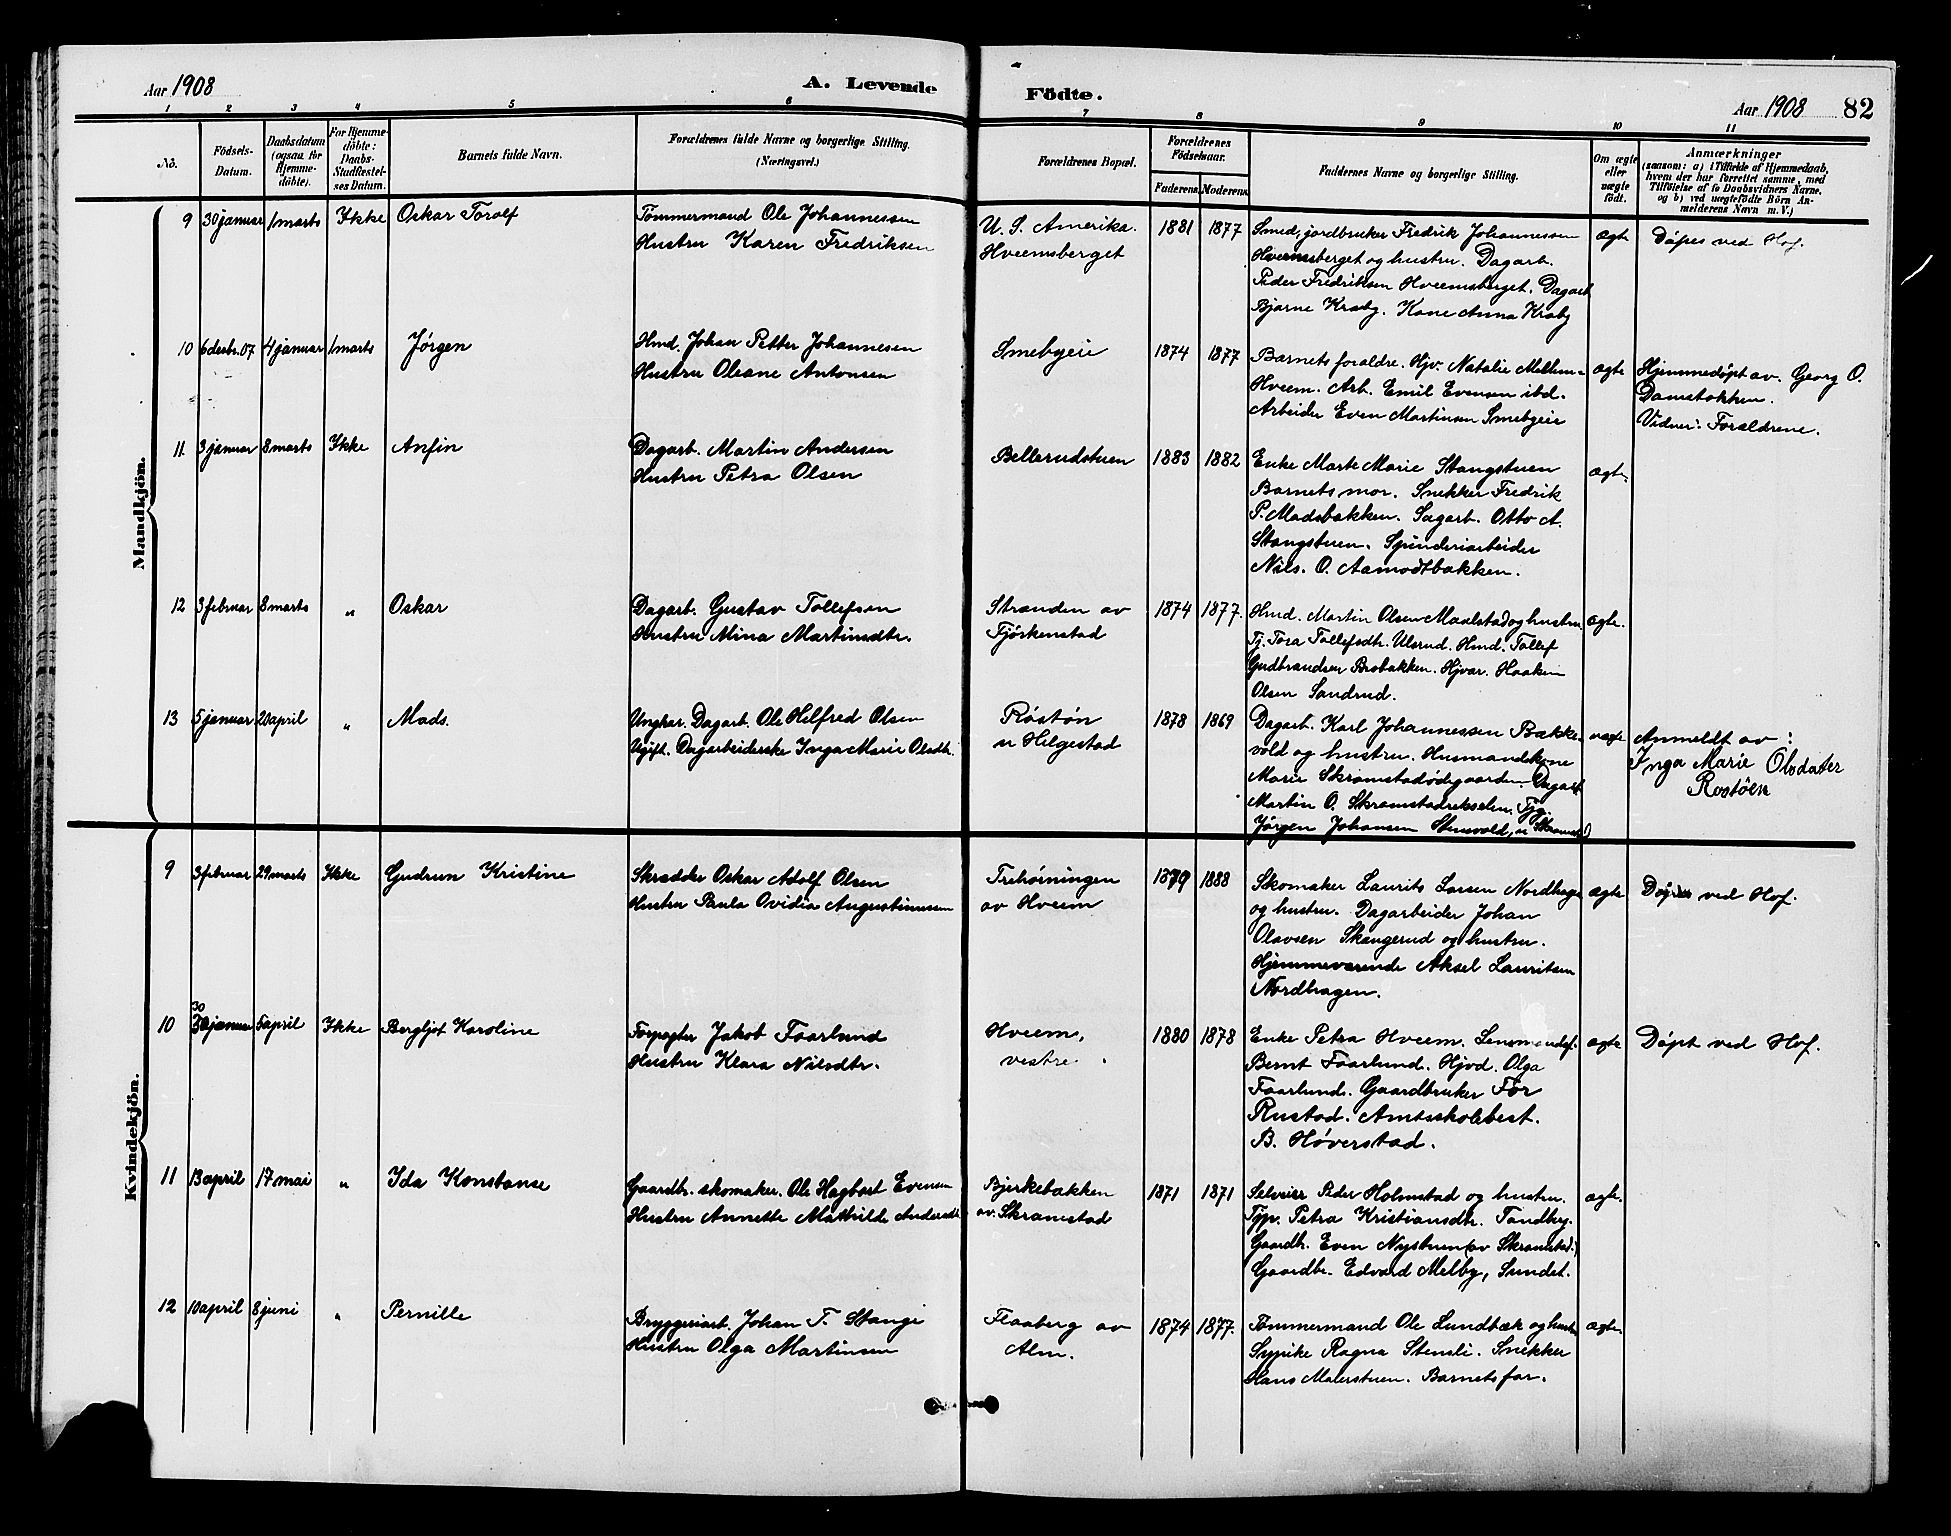 Aar 1908
A. Levende Födte.
Aar 1908 82
1 2 3 4 5 6 7 8 9 10 11
No.
Födsels-Datum.
Daabsdatum (ogsaa for Hjemme-döbte).
For Hjemme-döbte: Daabs-Stadfæstel-ses Datum.
Barnets fulde Navn.
Forældrenes fulde Navne og borgerlige Stilling. (Næringsvei.)
Forældrenes Bopæl.
Forældrenes Födselsaar.
Faderens. Moderens.
Faddernes Navne og borgerlige Stilling.
Om ægte eller uægte födt.
Anmærkninger
(saasom: a) i Tilfælde af Hjemmedaab,
hvem der har forrettet samme, med
Tilföielse af to Daabsvidners Navne,
og b) ved uægtefödte Börn An-
melderens Navn m. V.)
Mandkjön.
9 30 januar 1 marts Ikke Oskar Torolf
Tømmermand Ole Johannessen
Hustru Karen Fredriksen
U. S. Amerika.
Hveemsberget
1881 1877
Smed, jordbruker Fredrik Johannessen
Hveemsberget og hustru. Dagarb.
Peder Fredriksen Hveemsberget. Dagarb
Bjarne Kraby. Kone Anna Kraby
ægte Døpes ved Hof.
10 6 desbr. 07 4 januar 1 marts Jørgen
Hmd. Johan Petter Johannesen
Hustru Oleane Antonsen
Smebyeie
1874 1877
Barnets foraldre. Hjv. Natalie Mellem-
Hveem. Arb. Emil Evensen ibd.
Arbeider Even Martinsen Smebyeie
ægte
Hjemmedøpt av. Georg O.
Damstokken.
Vidner: Foraldrene.
11. 3 januar 8 marts Ikke Anfin
Dagarb. Martin Andersen
Hustru Petra Olsen
Bellerudstuen
1883 1882
Enke Marte Marie Stangstuen
Barnets mor. Snekker Fredrik
P. Madsbakken. Sagarb. Otto A.
Stangstuen. Spinderiarbeider
Nils. O. Aamodtbakken.
ægte.
12 3 februar 8 marts " Oskar
Dagarb. Gustav Tollefsen
Hustru Mina Martinsdtr.
Stranden av
Fjørkenstad
1874 1877.
Hmd. Martin Olsen Maalstad og hustru
Tj. Tora Tollefsdtr. Ulsrud. Hmd. Tollef
Gudbrandsen Brobakken. Hjvar. Haakon
Olsen Sandrud.
ægte.
13 5 januar 20 april " Mads.
Ungkar. Dagarb. Ole Helfred Olsen
Ugift. Dagarbeiderske Inga Marie Olsdtr.
Røstøn
u Hilgestad
1878 1869
Dagarb. Karl Johannessen Bække-
vold og hustru. Husmandskone
Marie Skramstadødegaarden. Dagarb
Martin O. Skramstadekselen. Tjg.
Jørgen Johansen Stensvold, u Skramst.)
uægte
Anmeldt av:
Inga Marie Olsdater
Rostöen
Kvindekjön.
9 3 februar 29 marts Ikke Gudrun Kristine
Skrædder Oskar Adolf Olsen
Hustru Paula Ovidia Augustinusen
Trehørningen
av Hveem
1879 1888
Skomaker Laurits Larsen Nordhagen
og hustru. Dagarbeider Johan
Olavsen Skangerud og hustru.
Hjemmeværende Aksel Lauritsen
Nordhagen.
ægte ved Hof.
10 30 januar 5 april Ikke Bergljot Karoline
Forpagter Jakob Faarlund
Hustru Klara Nilsdtr.
Hveem,
vestre
1880 1878
Enke Petra Hveem. Lensmandsf.
Bernt Faarlund. Hjvd. Olga
Faarlund. Gaardbruker For
Rustad. Amtsskolebest.
B. Høverstad.
ægte Døpt ved Hof.
11 13 april 17 mai " Ida Konstanse
Gaardbr. skomaker. Ole Hagbart Evensen
Hustru Annette Mathilde Andersdtr
Bjerkebakken
av. Skramstad
1871 1871
Selveier Peder Holmstad og hustru.
Tjp. Petra Kristiansdtr. Tandberg.
Gaardbr. Even Nystuen (av Skramstad.)
Gaardbr. Edvard Melby, Sundet.
ægte.
12 10 april 8 juni " Pernille
Bryggeriarb. Johan T. Stange
Hustru Olga Martinsen
Flaaberg av
Alm.
1874 1877.
Tømmermand Ole Lundbæk og hustru
Sypike Ragna Stensli. Snekker
Hans Malerstuen. Barnets far.
ægte